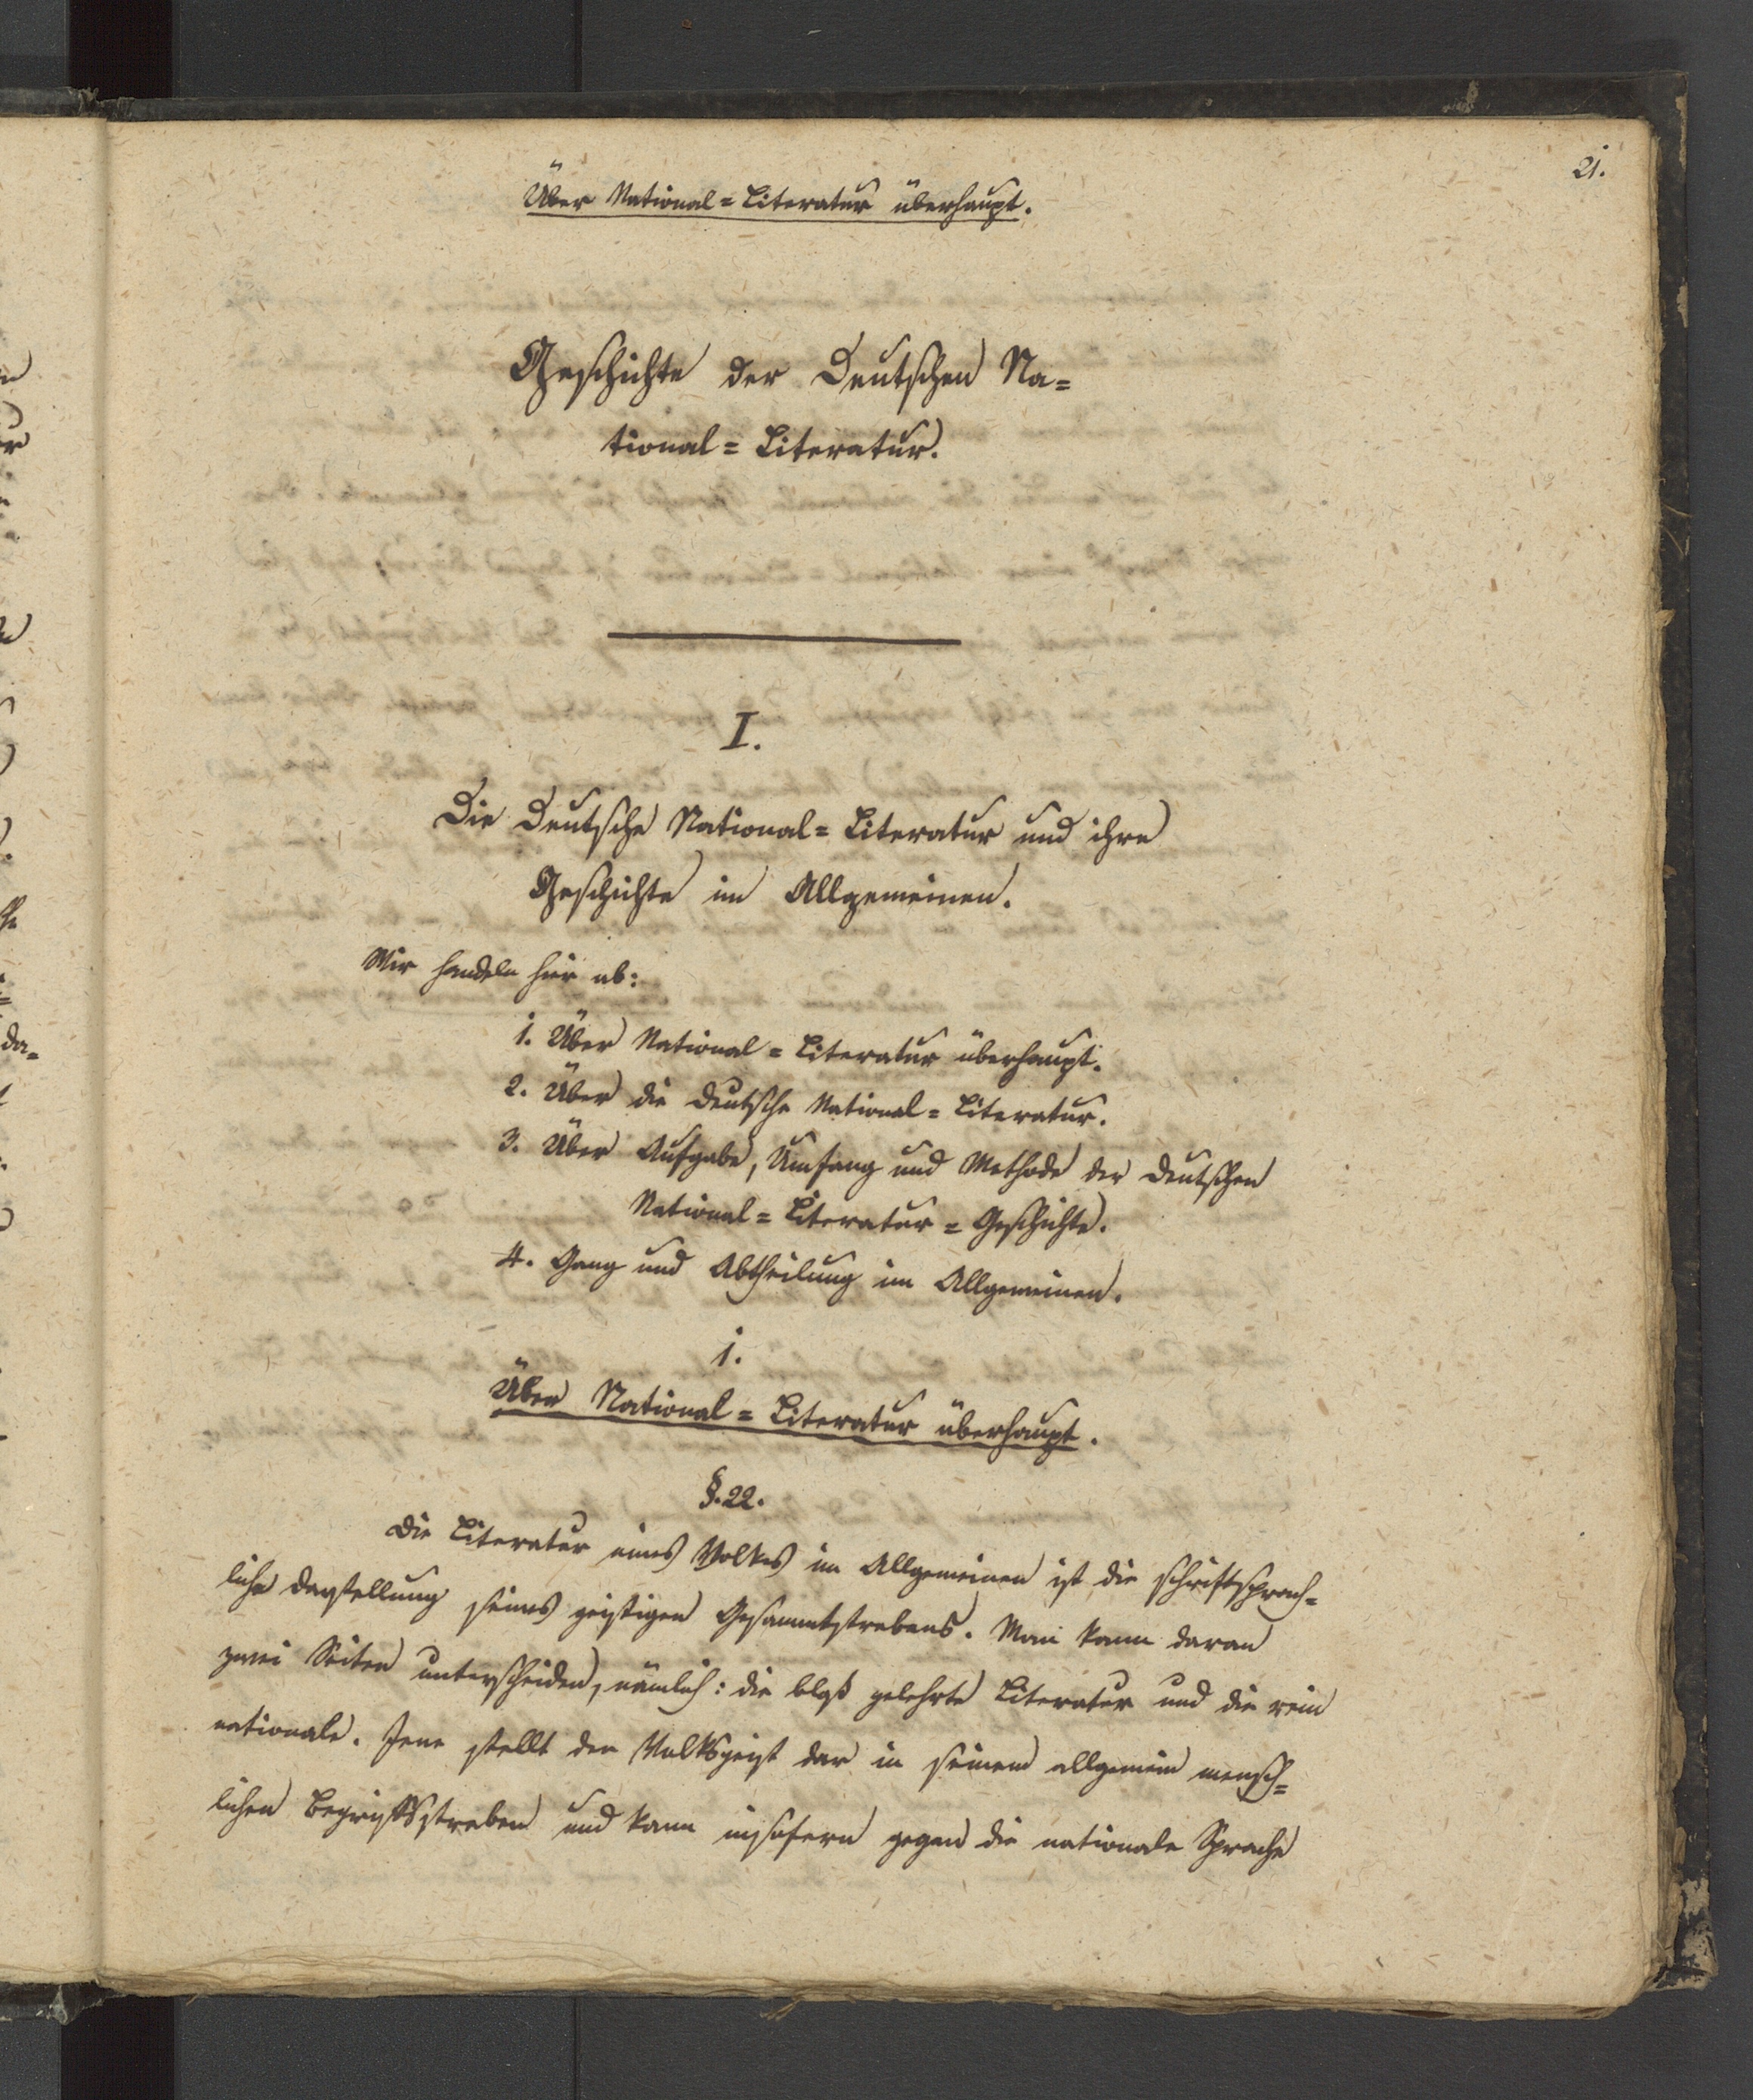 21.
Über National=Literatur überhaupt.
Geschichte der Deutschen Na=
tional=Literatur.
I.
Die Deutsche National=Literatur und ihre
Geschichte im Allgemeinen.
Wir handeln hier ab:
1. Über National=Literatur überhaupt.
2. Über die deutsche National=Literatur.
3. Über Aufgabe, Umfang und Methode der deutschen
National=Literatur=Geschichte.
4. Gang und Abtheilung im Allgemeinen.
1.
Über National=Literatur überhaupt.
§. 22.
Die Literatur eines Volkes im Allgemeinen ist die schriftsprach=
liche Darstellung seines geistigen Gesammtstrebens. Man kann daran
zwei Seiten unterscheiden, nämlich: die bloß gelehrte Literatur und die rein
nationale. Jene stellt den Volksgeist dar in seinem allgemein mensch=
lichen Begriffsstreben und kann insofern gegen die nationale Sprache